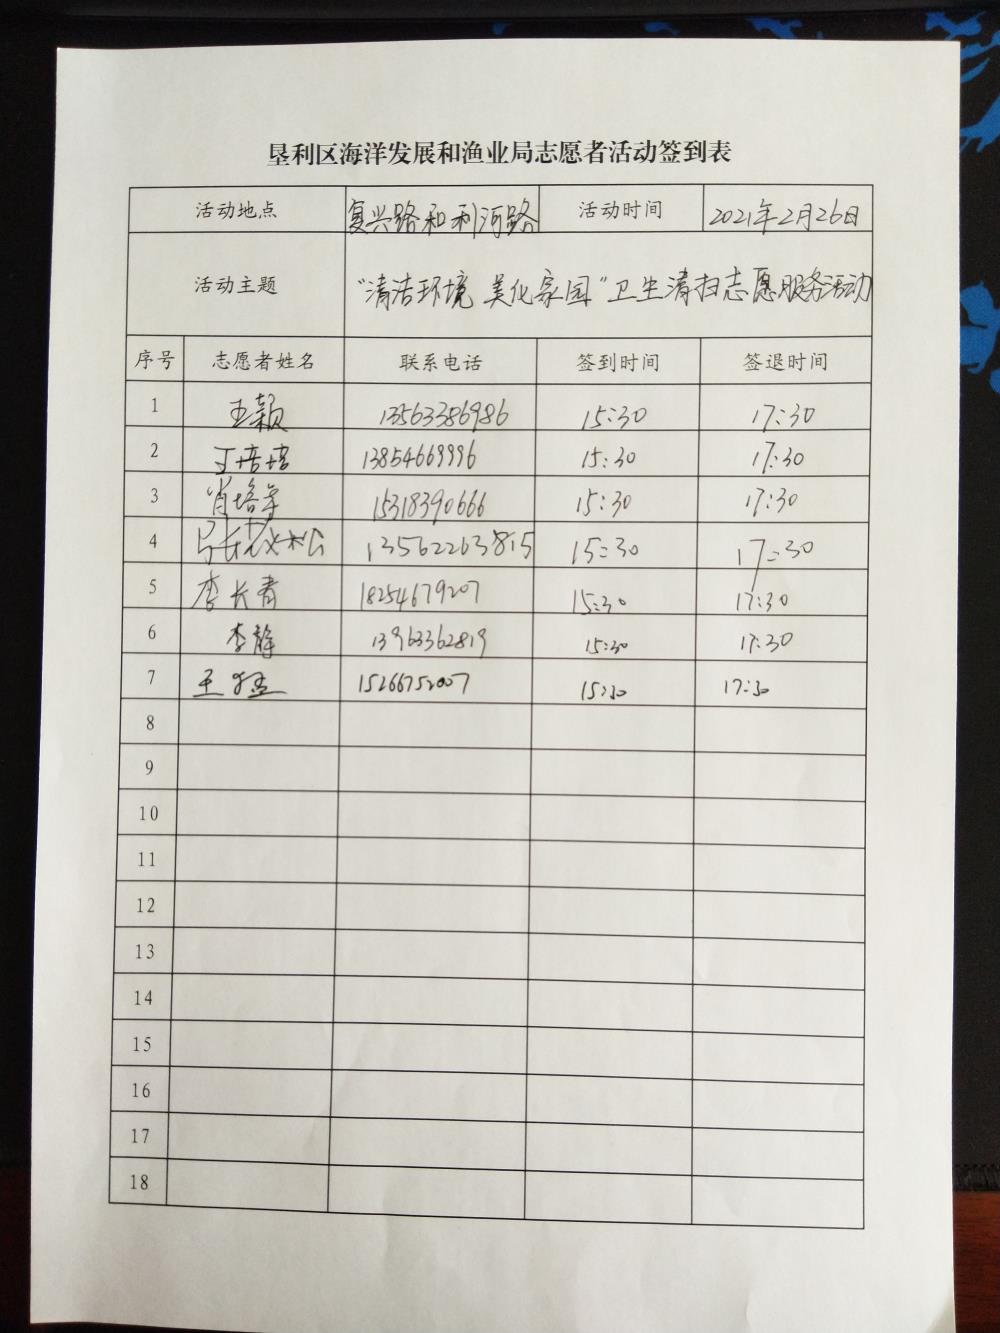 垦利区海洋发展和渔业局志愿者活动签到表
活动地点 复兴路和利河路 活动时间 2021年2月26日
活动主题 "清洁环境 美化家园"卫生清扫志愿服务活动
序号 志愿者姓名 联系电话 签到时间 签退时间
1 王颖 13563386986 15:30 17:30
2 丁培培 13854669996 15:30 17:30
3 肖培 15318390666 15:30 17:30
4 13562263815 15:30 17:30
5 李长青 18254679207 15:30 17:30
6 李静 13963362819 15:30 17:30
7 王猛 15266752007 15:30 17:30
8
9
10
11
12
13
14
15
16
17
18